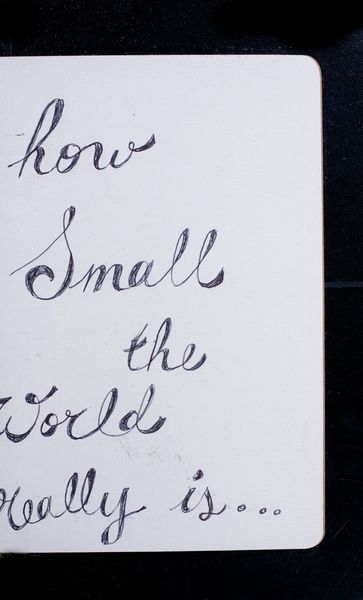 how
Small
the
World
Really is...